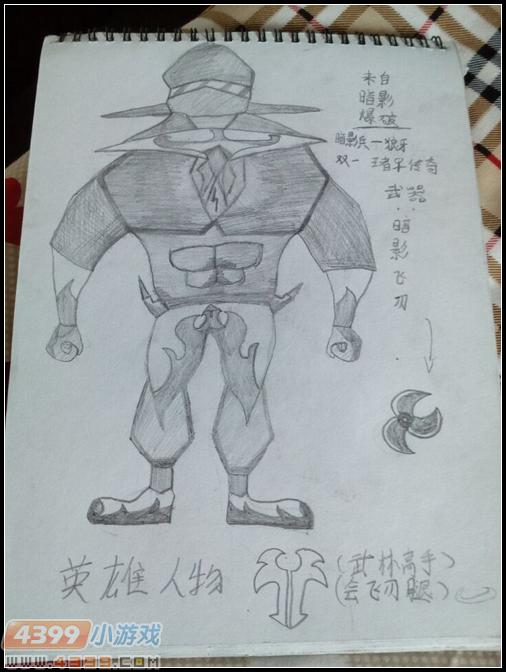 来自
暗影
爆破
暗影兵一狼牙
双一 王者平传奇
武器
:
暗
影
飞
刃
英雄人物
(武林高手)
(会飞刃腿)
4399小游戏
www.4399.com